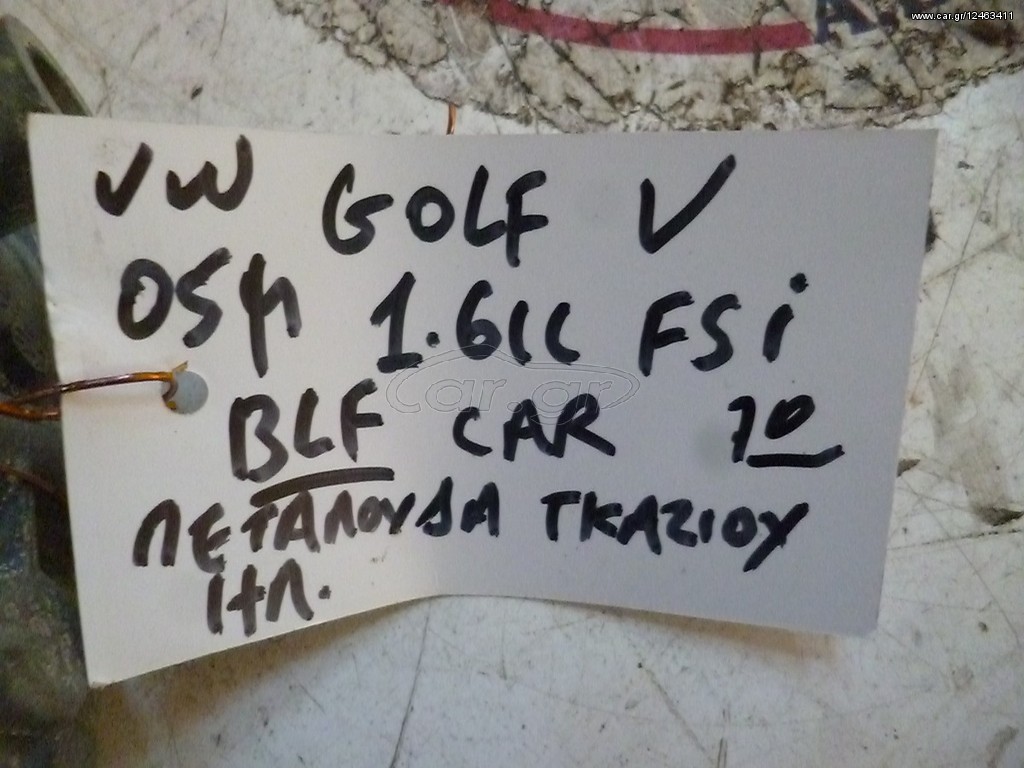 www.car.gr/12463411
VW GOLF V
05μ 1.6ιι FSi
car.gr
BLF CAR 70
ΠΕΤΑΛΟΥΔΑ ΓΚΑΖΙΟΥ
ΙΗΛ.